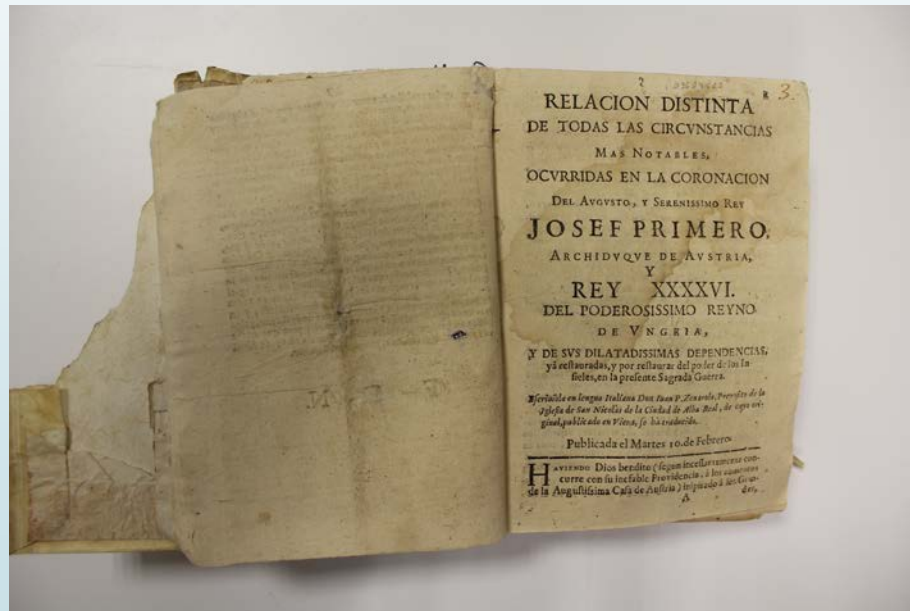 3.
RELACION DISTINTA
DE TODAS LAS CIRCVNSTANCIAS
MAS NOTABLES,
OCVRRIDAS EN LA CORONACION
DEL AVGVSTO, Y SERENISSIMO REY
JOSEF PRIMERO,
ARCHIDVQVE DE AVSTRIA,
Y
REY XXXXVI.
DEL PODEROSISSIMO REYNO
DE VNGRIA,
Y DE SVS DILATADISSIMAS DEPENDENCIAS,
yà restauradas, y por restaurar del poder de los In
fieles, en la presente Sagrada Guerra.
Escrivióla en lengua Italiana Don Iuan P. Zenarola, Preposito de la
Iglesia de San Nicolàs de la Ciudad de Alba Real, de cuyo ori-
ginal, publicado en Viena, se ha traducido.
Publicada el Martes 10. de Febrero.
HAVIENDO Dios bendito (segun incessantemente con-
curre con su inefable Providencia, à los
de la Augustissima Casa de Austria) inspirado à los Gran-
des,
A